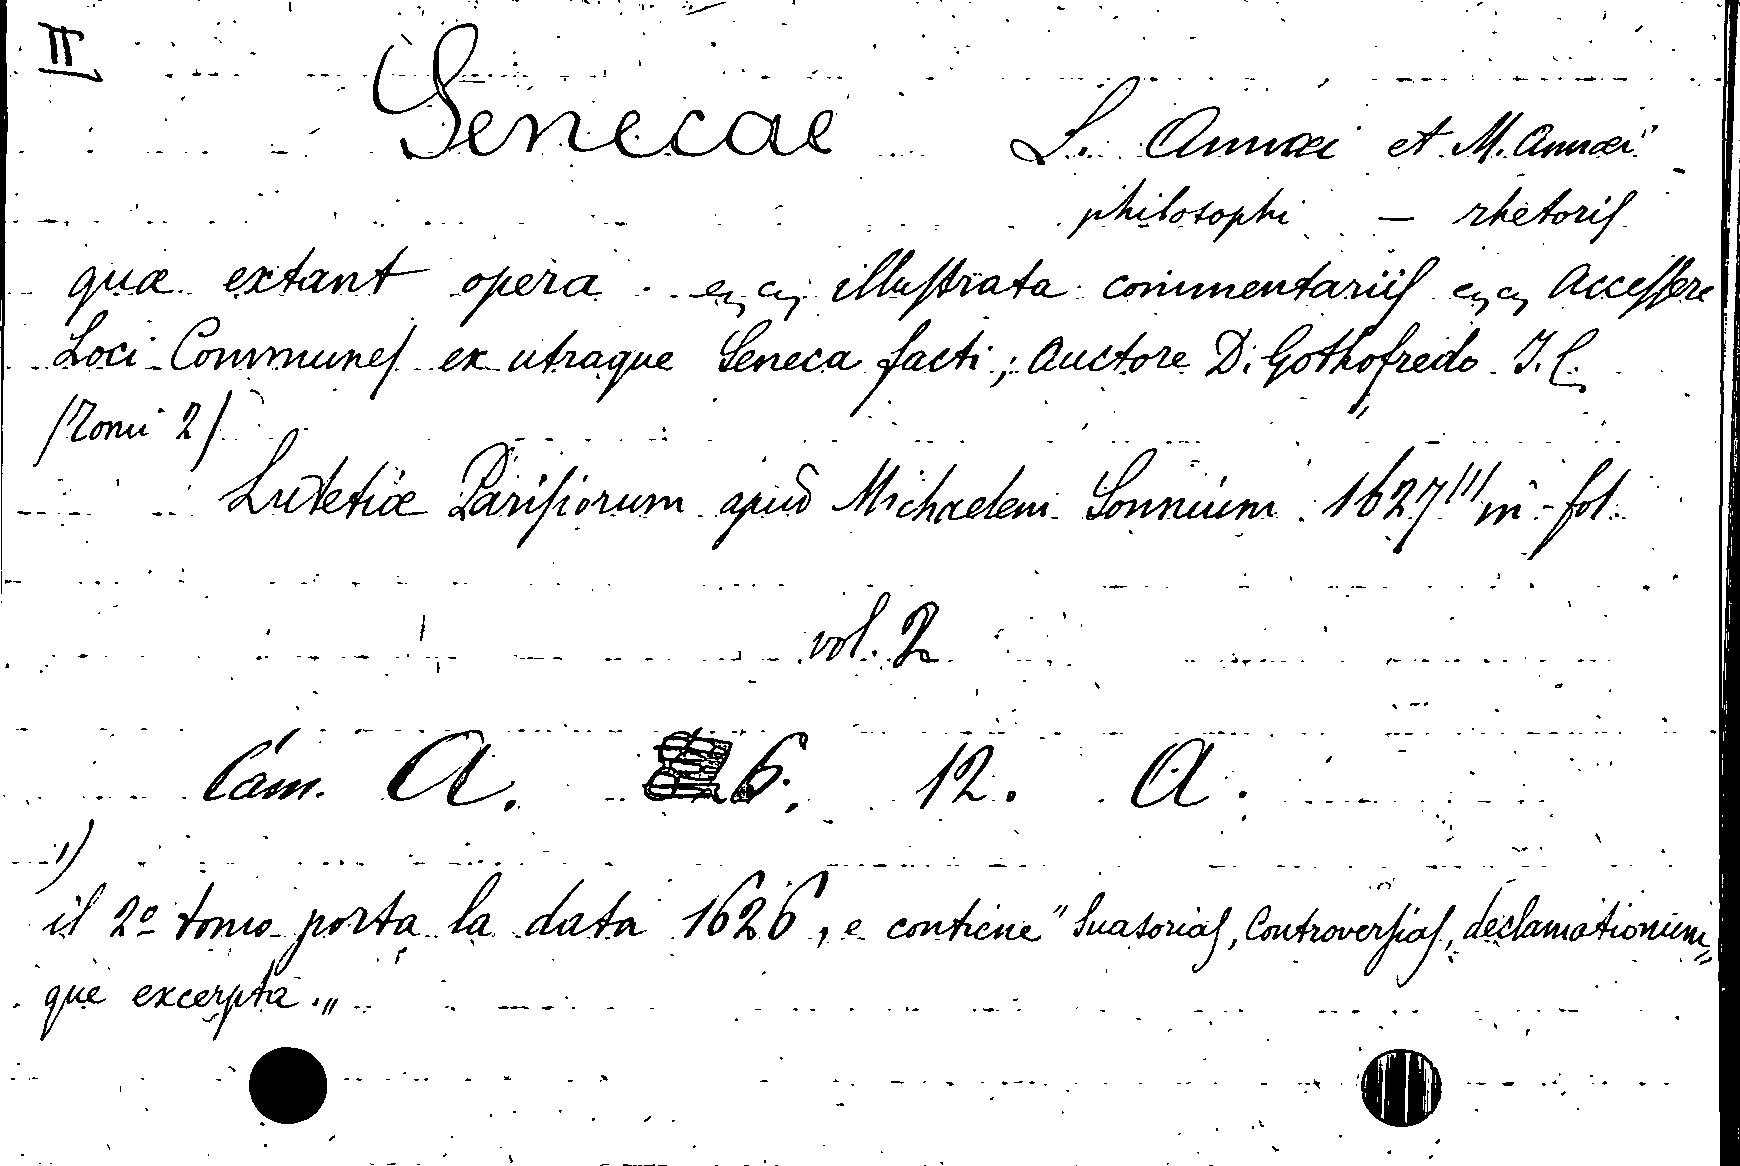 II
Senecae L. Annæi et M. Annæi
philosophi — rhetoris
quæ extant opera . illustrata commentariis Accessere
Loci Communes ex utraque Seneca facti ; Auctore D. Gothofredo J. C.
(Tomi 2)
Lutetiæ Parisiorum apud Michaelem Sonnium 1627 (1) in-fol.
vol. 2
Cam. A. 6. 12. A.
1)
il 2º tomo porta la data 1626, e contiene "Suasorias, Controversias, declamationum„
que excerpta.„